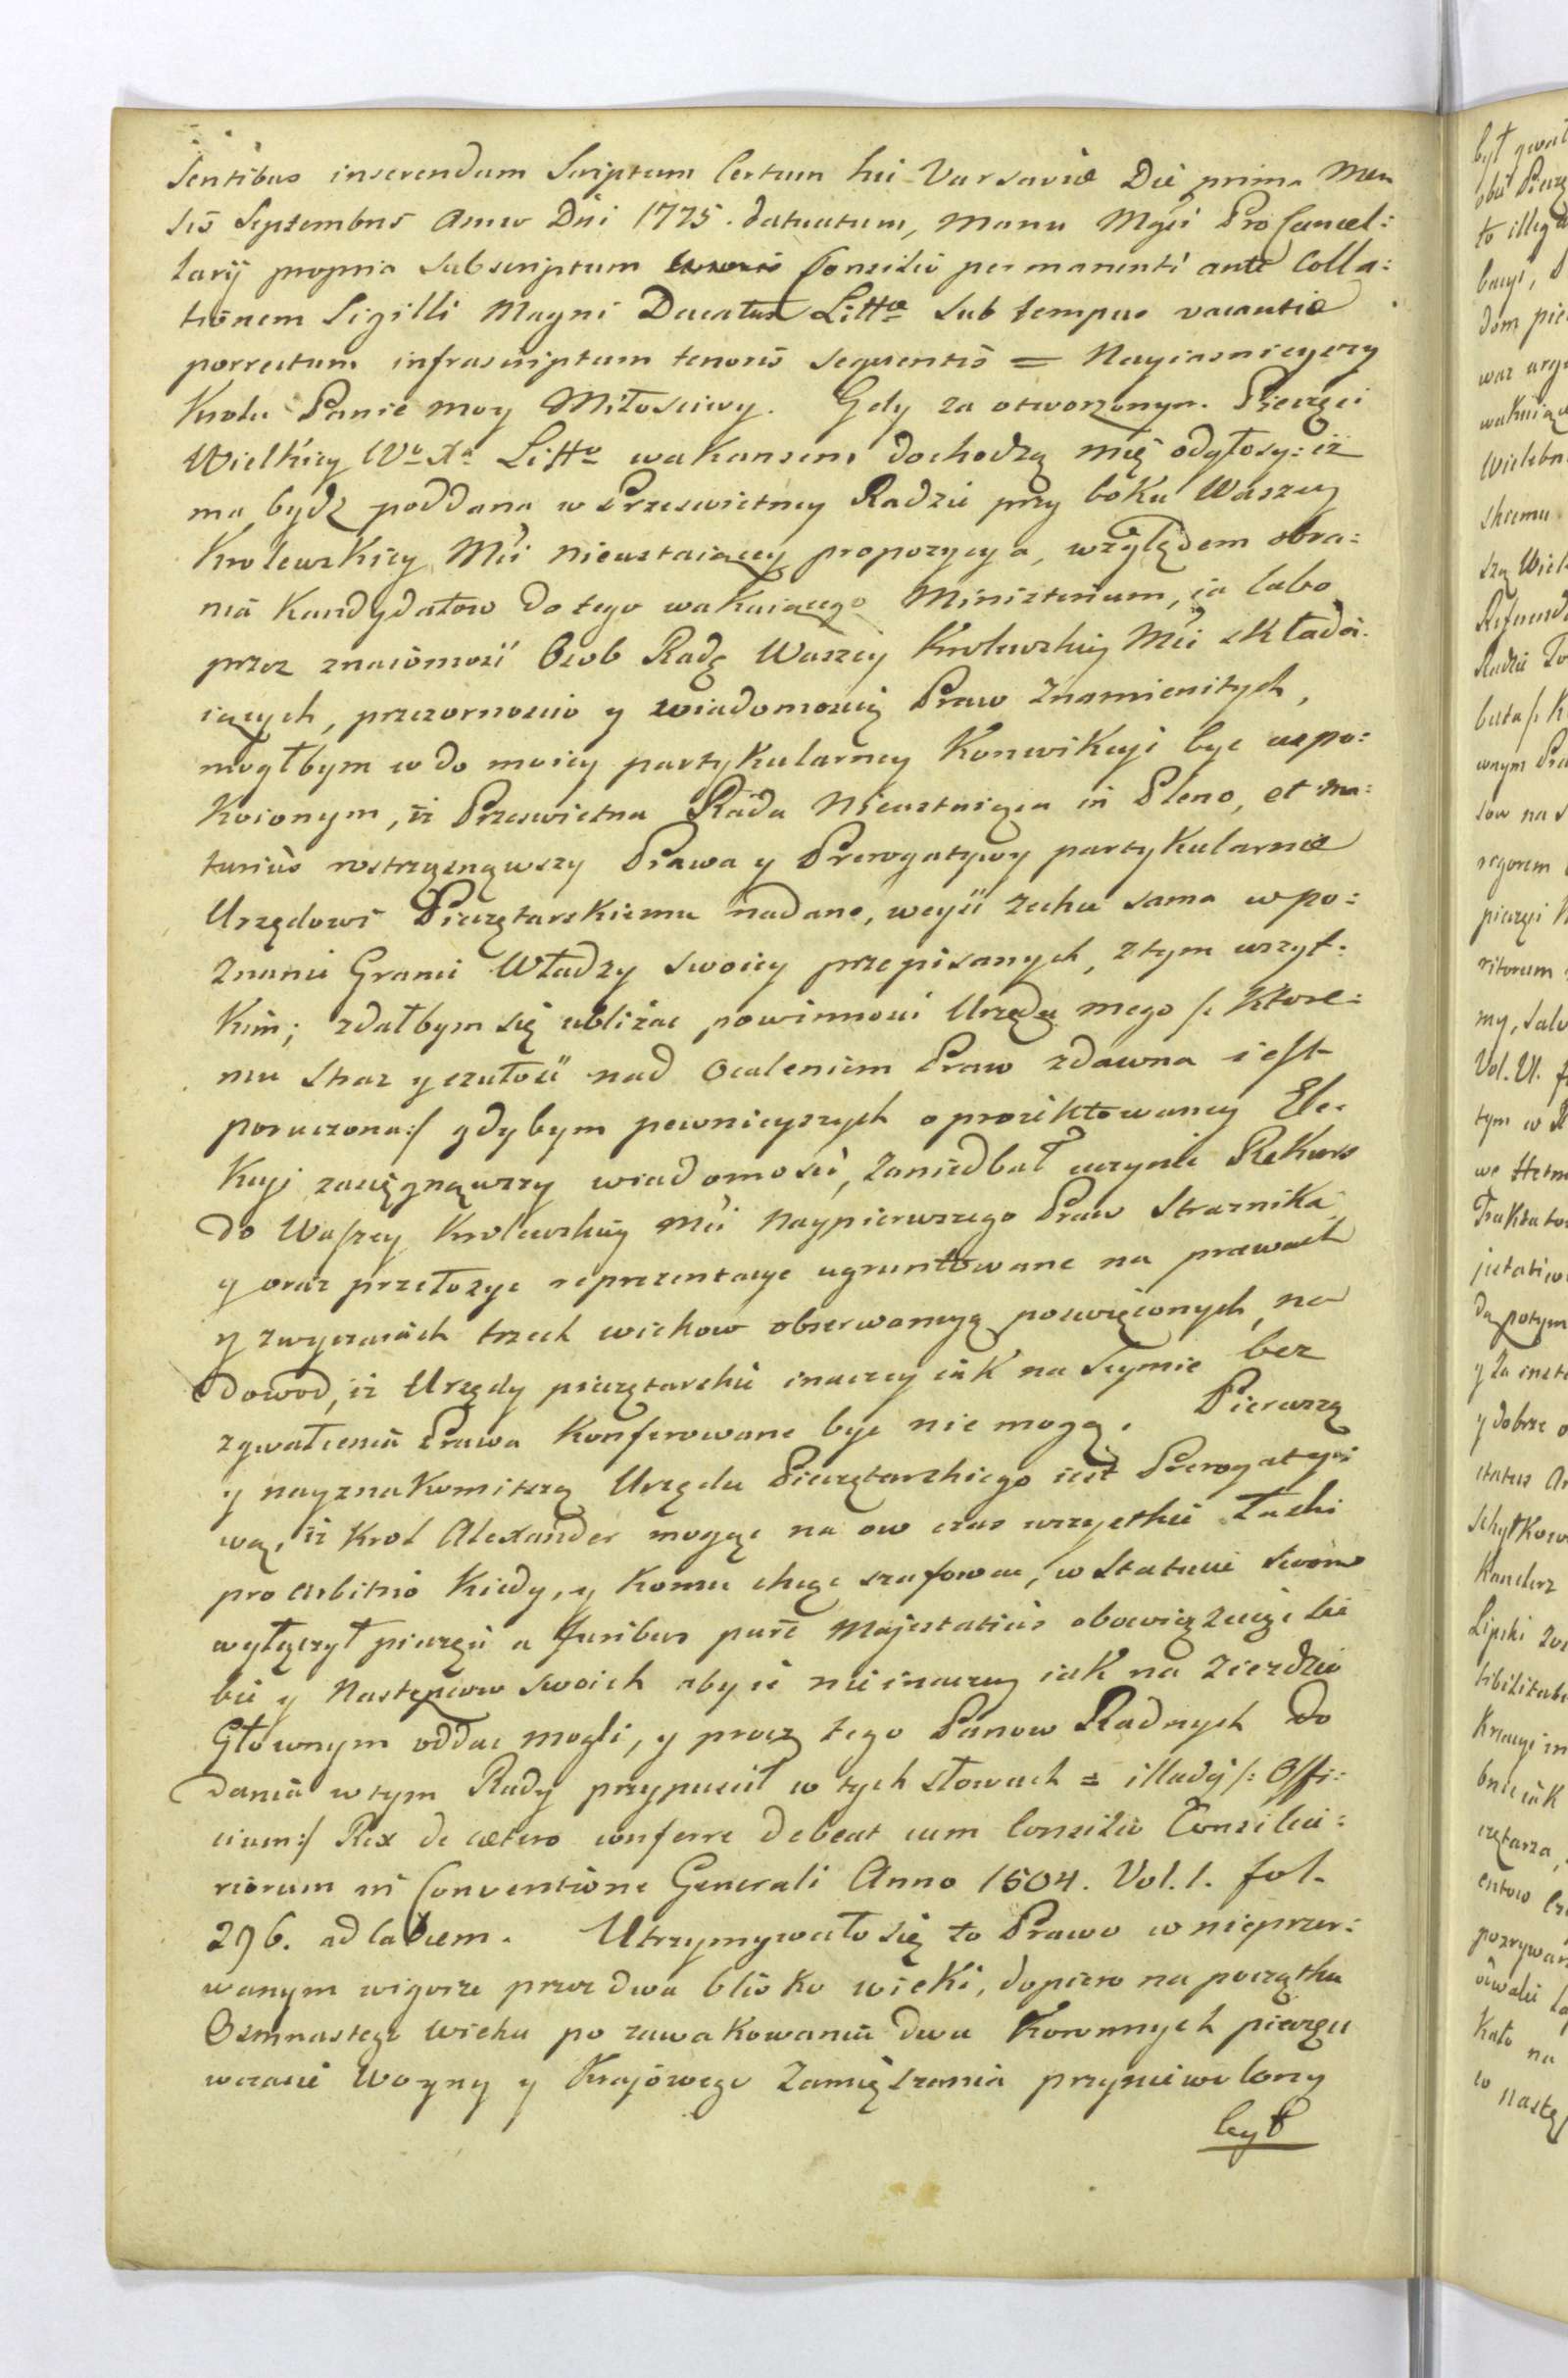 sentibus inserendum Scriptum Certum hic Varsaviæ Die prima Men
sis Septembris Anno Dni 1775. datuatum, manu Mgci ProCancel:
larij propria subscriptum Consilio permanenti ante Colla:
tionem Sigilli Magni Ducatus Littæ sub tempus vacantiæ
porrectum infrascriptum tenoris sequentis = Nayiasnieyszy
Krolu Panie moy Miłosciwy. Gdy za otworzonym Pieczęci
Wielkiey Wo Xa Litto wakansem dochodzą mię odgłosy: iż
ma bydz poddana w Przeswietney Radzie przy boku Waszey
Krolewskiey Mci nieustaiącey propozycya, względem obra:
nia Kandydatow do tego wakuiącego Ministerium, ia lubo
przez znaiomość Osob Radę Waszey Krolewskiey Mci składa:
iących, przezornoscio y wiadomoscią Praw znamienitych,
mogłbym w do moiey partykularney Konwikcyi byc uspo:
Koionym, iż Przeswietna Rada Nieustaiąca in Pleno, et ma:
turius rostrząsnąwszy Prawa y Prerogatywy partykularnie
Urzędowi Pieczętarskiemu nadane, weyść zechce sama w po:
znanie Granic Władzy swoiey przepisanych, z tym wszyt:
kim; zdałbym się ubliżac powinnosci Urzędu mego /: Ktore:
mu straz y czułość nad Ocaleniem Praw zdawna iest
poruczona:/ gdybym pewnieyszych o proiektowaney Ele:
Kcyi zaciągnąwszy wiadomosci, zaniedbał uczynic Rekurs
do Waszey Krolewskiey Mci Naypierwszego Praw Straznika
y oraz przełozyc reprezentacye ugruntowane na prawach
y zwyczaiach trzech wiekow obserwancyą poswięconych, na
dowod, iż Urzędy pieczętarskie inaczey iak na Seymie bez
zgwałcenia Prawa Konferowane byc nie mogą. Pierwszą
y nayznakomitszą Urzędu Pieczętarskiego iest Prerogaty:
wą, iż Krol Alexander mogąc na ow czas wszystkie Łaski
pro arbitrio Kiedy, y Komu chcąc szafowac, w Statucie swoim
wyłączył pieczęci a Juribus pure Majestaticis obowiązuiąc sie
bie y Następcow swoich aby ie nieinaczey iak na Zieździe
Głownym oddac mogli, y procz tego Panow Radnych do
dania w tym Rady przypuscił w tych słowach = illadij /: Offi:
cium:/ Rex de cætero conferre debeat cum Consilio Consilia:
riorum in Conventione Generali Anno 1504. Vol. 1. fol.
296. ad calcem. Utrzymywało się to Prawo w nieprzer:
wanym wigorze przez dwa blisko wieki, dopiero na początku
Osmnastego wieku po zawakowaniu dwu Koronnych pieczęci
wczasie Woyny y Krajowego Zamięszania przyniewolony
był